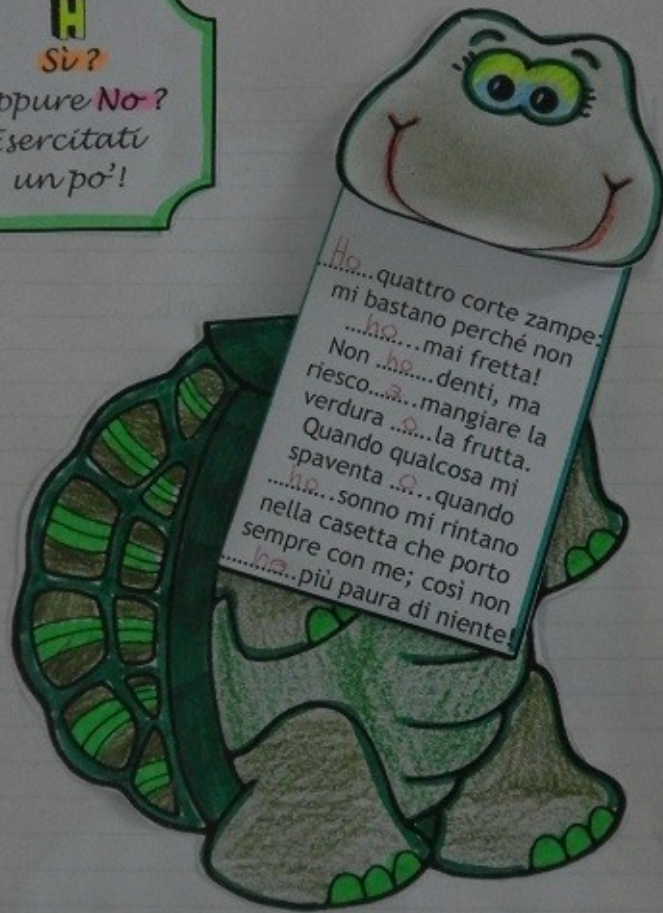 H
Sì ?
oppure No ?
Esercitati
un po'!
Ho quattro corte zampe:
mi bastano perché non
ho mai fretta!
Non ho denti, ma
riesco a mangiare la
verdura o la frutta.
Quando qualcosa mi
spaventa o quando
ho sonno mi rintano
nella casetta che porto
sempre con me; così non
ho più paura di niente!